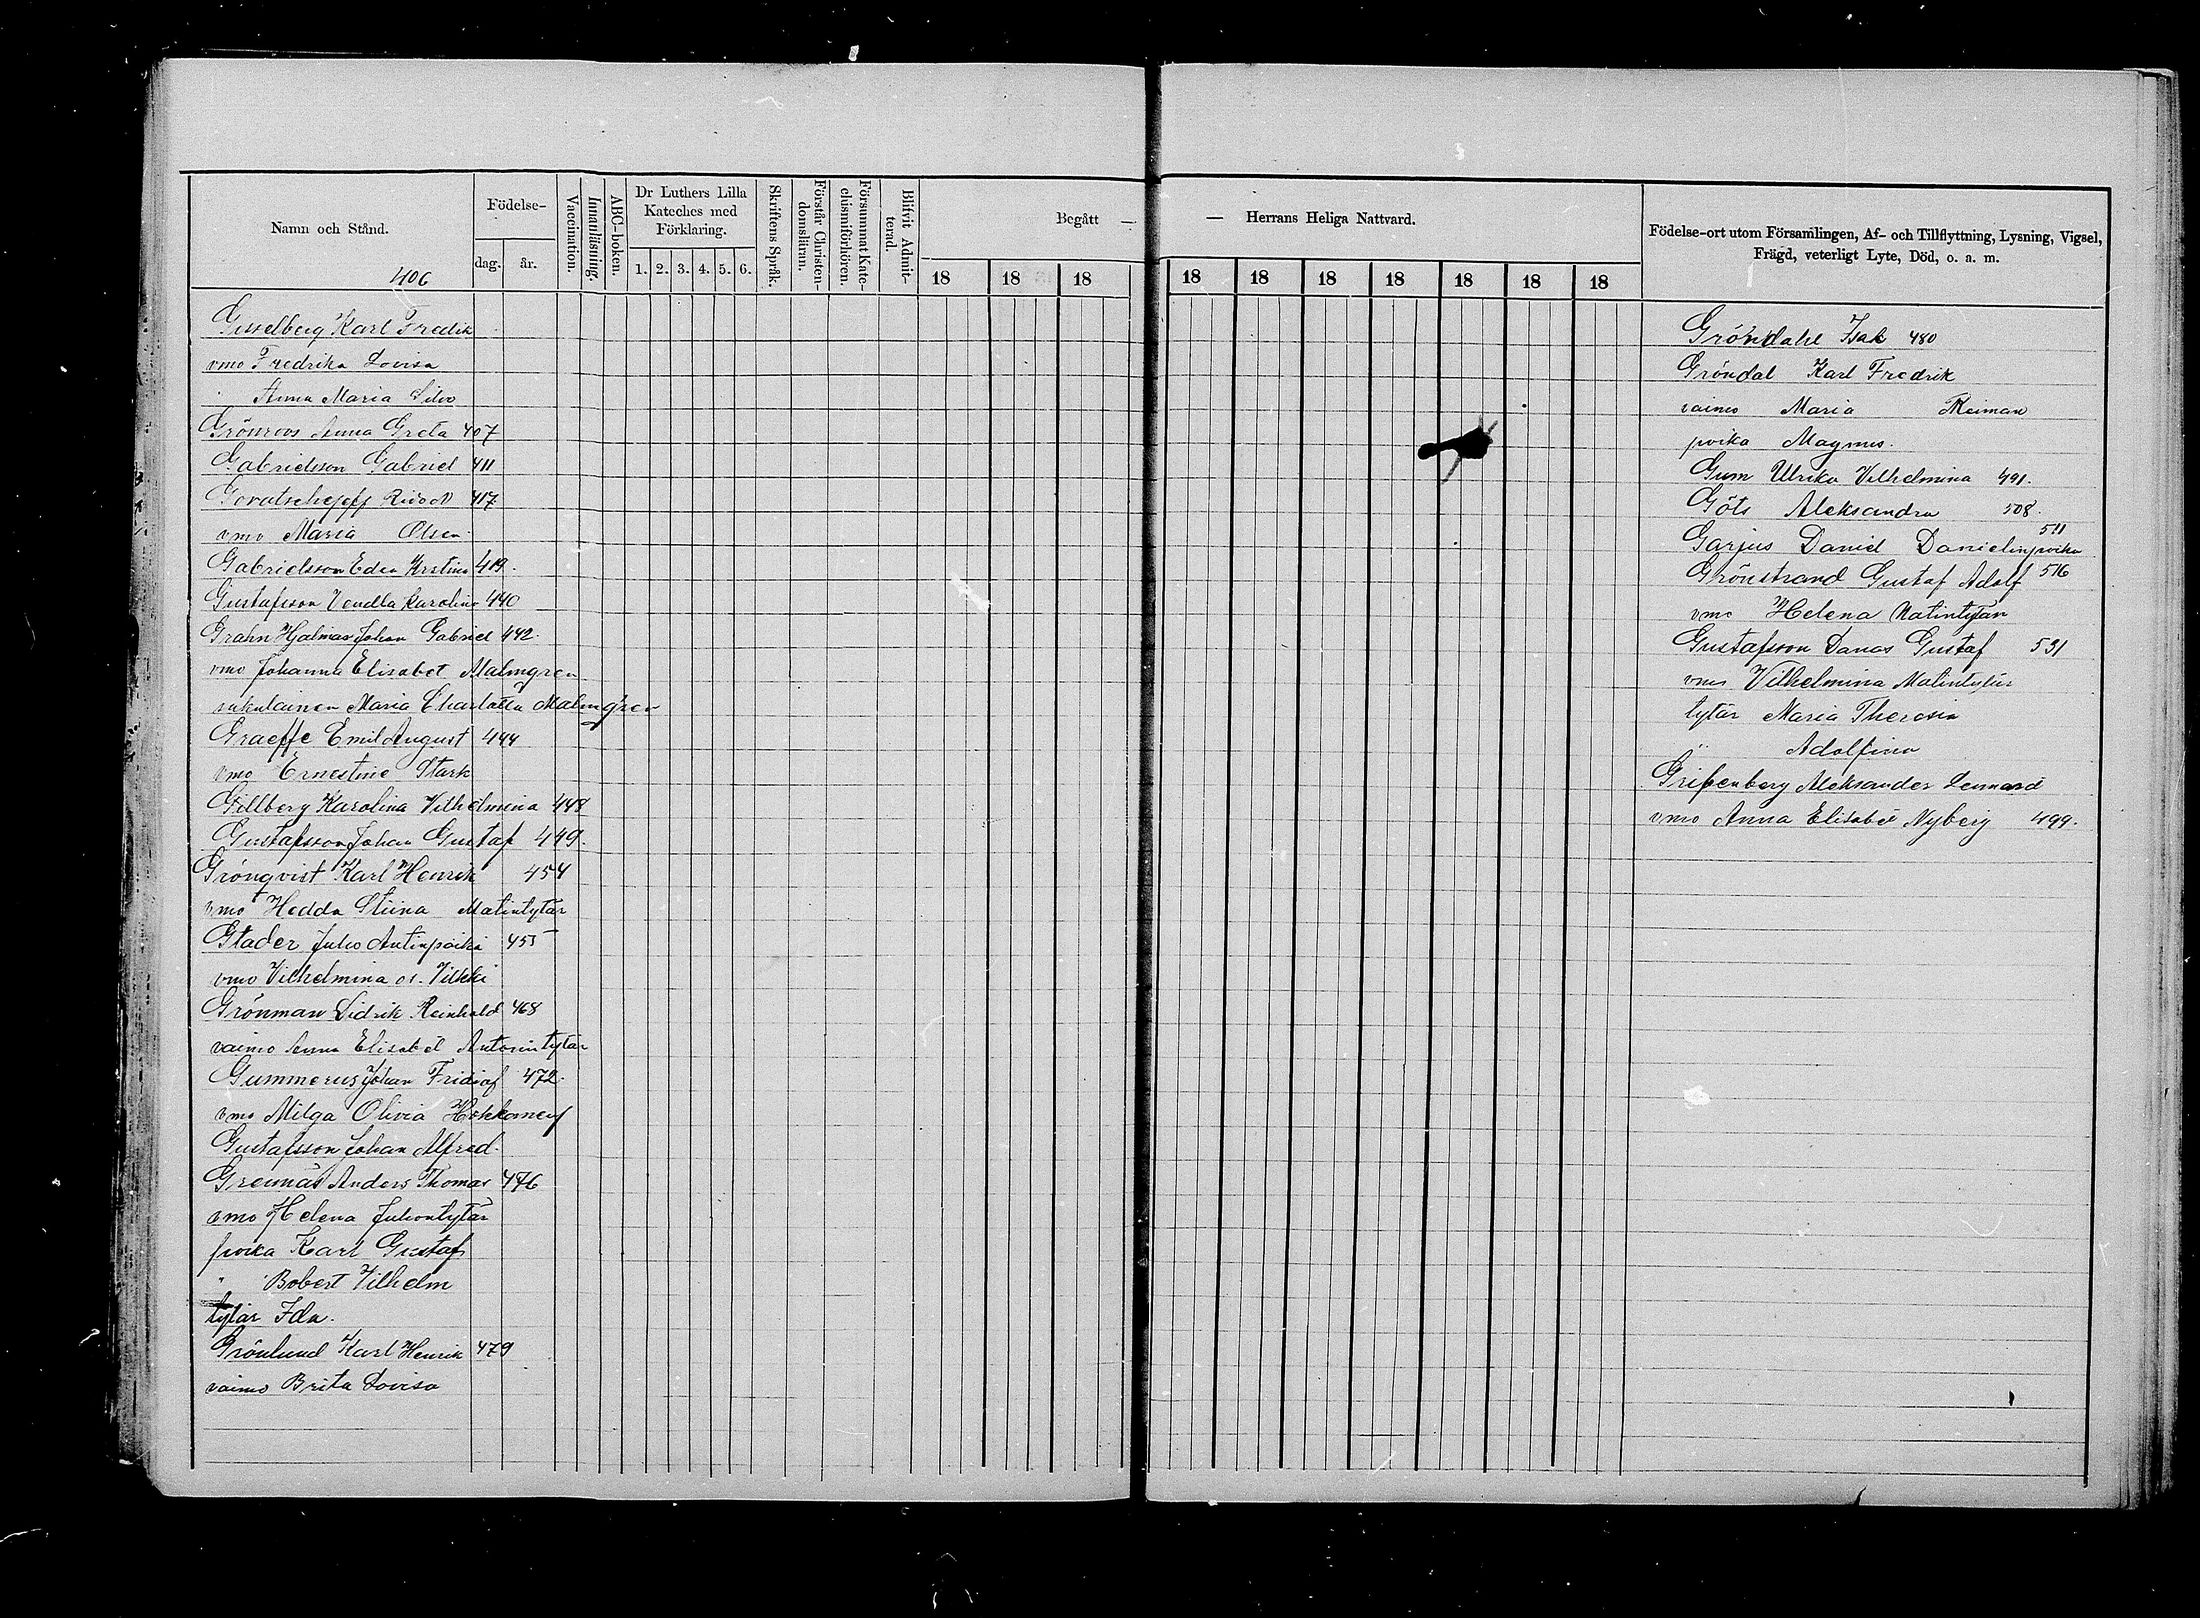 Namn och Stånd.
406
Födelse-
dag.
år.
Vaccination.
Innanläsning.
ABC-boken.
Dr Luthers Lilla
Kateches med
Förklaring.
1. 2. 3. 4. 5. 6.
Skriftens Språk.
Förstår Christen-
domsläran.
Försummat Kate-
chismiförhören.
Blifvit Admit-
terad.
Begått —
18 18 18
— Herrans Heliga Nattvard.
18 18 18 18 18 18 18
Födelse-ort utom Församlingen, Af- och Tillflyttning, Lysning, Vigsel,
Frägd, veterligt Lyte, Död, o. a. m.
Gisselberg Karl Fredik
vmo Fredrika Lovisa
Anna Maria Silvo
Grönroos Anna Greta 407
Gabrielsson Gabriel 411
417
vmo Maria Olsen
Gabrielsson Edla Kristina 419.
Gustafsson Vendla Karolina 440
Grahn Hjalmar Johan Gabriel 442.
vmo Johanna Elisabet Malmgren
sukulainen Maria Charlotta Malmgren
Graeffe Emil August 444
vmo Ernestine Stark
Gillberg Karolina Vilhelmina 448
Gustafsson Johan Gustaf 449.
Grönqvist Karl Henrik 454
vmo Hedda Stiina Matintytär
Glader Juho Antinpoika 455
vmo Vilhelmina os. Vilkki
Grönman Didrik Reinhold 468
vaimo Anna Elisabet Antonintytär
Gummerus Johan Fridiof 472.
vmo Milga Olivia
Gustafsson Johan Alfred.
Grennäs Anders Thomas 476
vmo Helena Juhontytär
poika Karl Gustaf
" Robert Vilhelm
tytär Ida.
Grönlund Karl Henrik 479
vaimo Brita Lovisa
Gröndahl Isak 480
Gröndal Karl Fredrik
vaimo Maria Reiman
poika Magnus.
Gum Ulrika Vilhelmina 491.
Göts Aleksandra 508.
511
Garjus Daniel Danielinpoika
Grönstrand Gustaf Adolf 516
vmo Helena Matintytär
Gustafsson Danas Gustaf 531
vmo Vilhelmina Matintytär
tytär Maria Theresia
" Adolfina
Gripenberg Aleksander Lennard
vmo Anna Elisabet Nyberg 499.